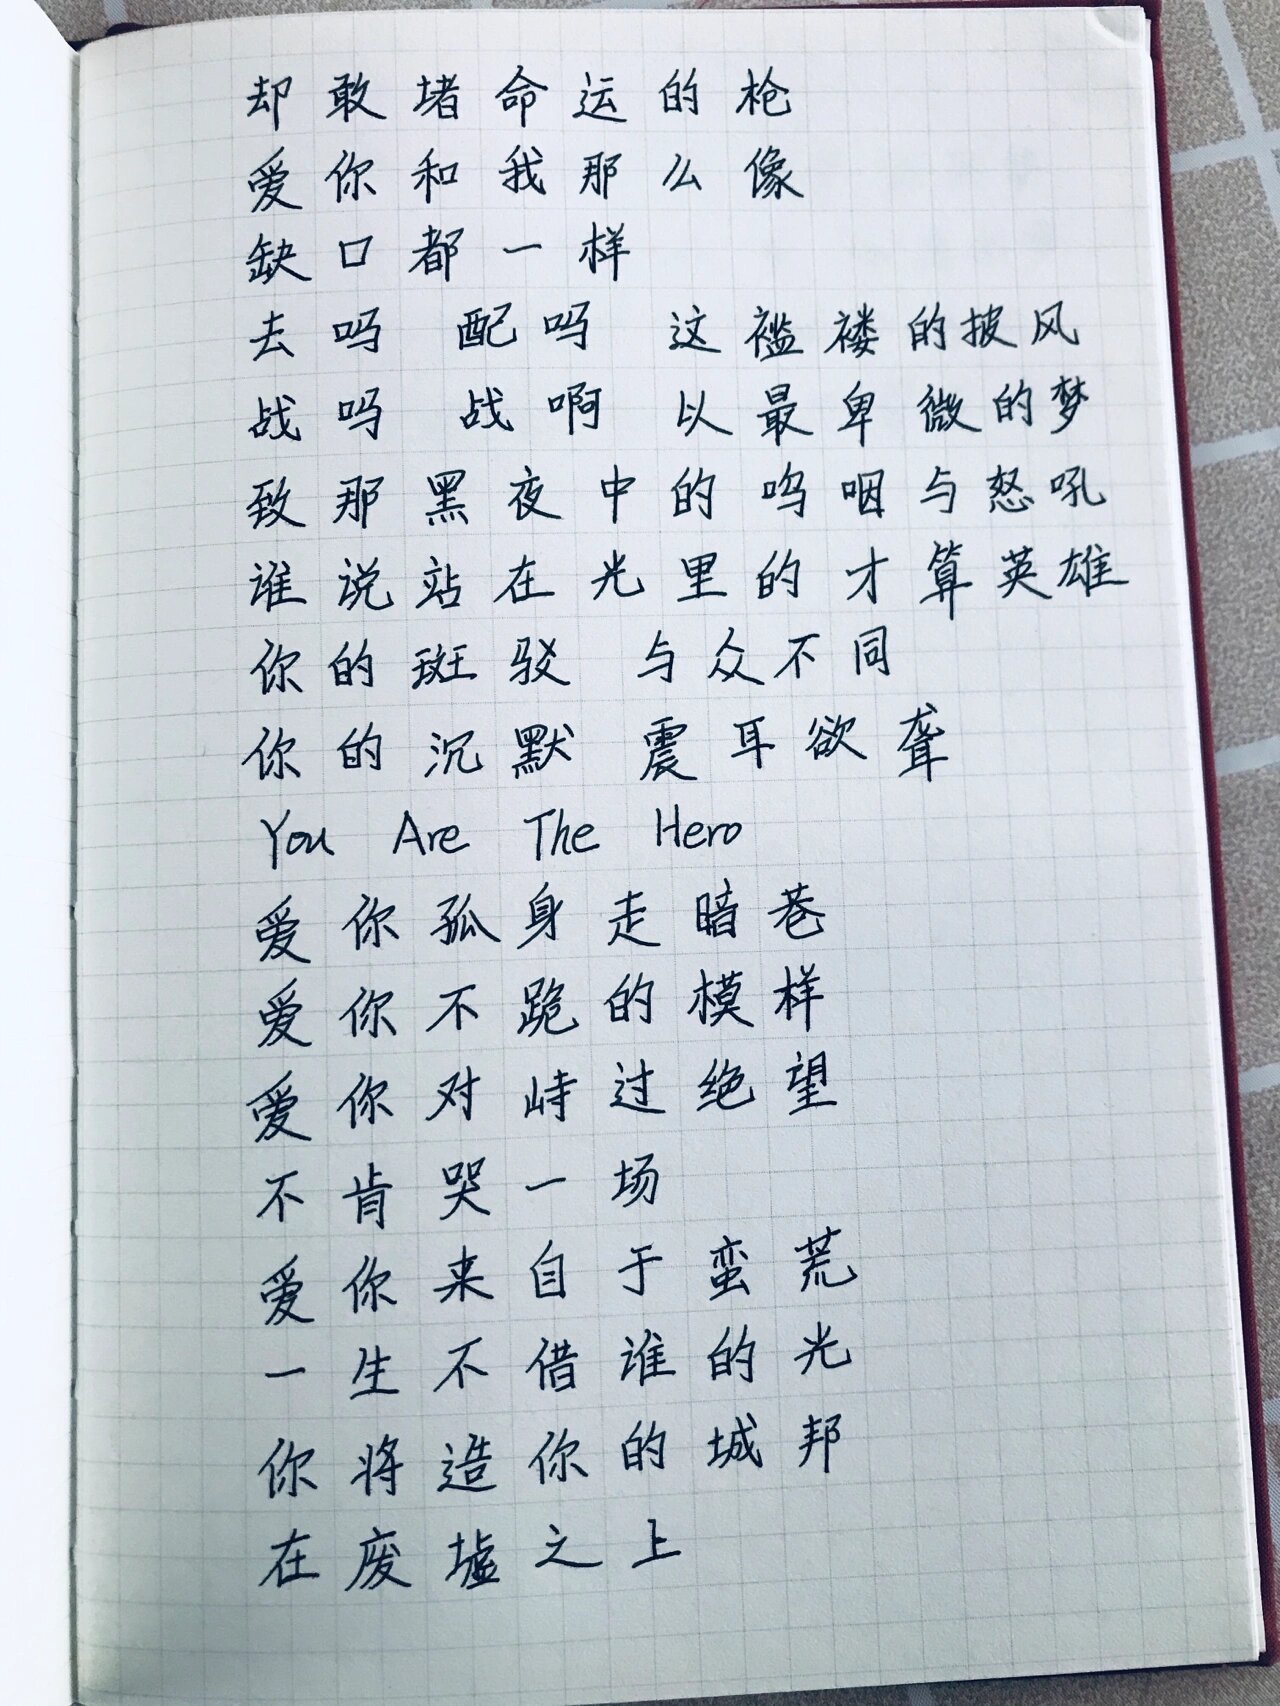 却敢堵命运的枪
爱你和我那么像
缺口都一样
去吗 配吗 这褴褛的披风
战吗 战啊 以最卑微的梦
致那黑夜中的呜咽与怒吼
谁说站在光里的才算英雄
你的斑驳 与众不同
你的沉默 震耳欲聋
You Are The Hero
爱你孤身走暗巷
爱你不跪的模样
爱你对峙过绝望
不肯哭一场
爱你来自于蛮荒
一生不借谁的光
你将造你的城邦
在废墟之上